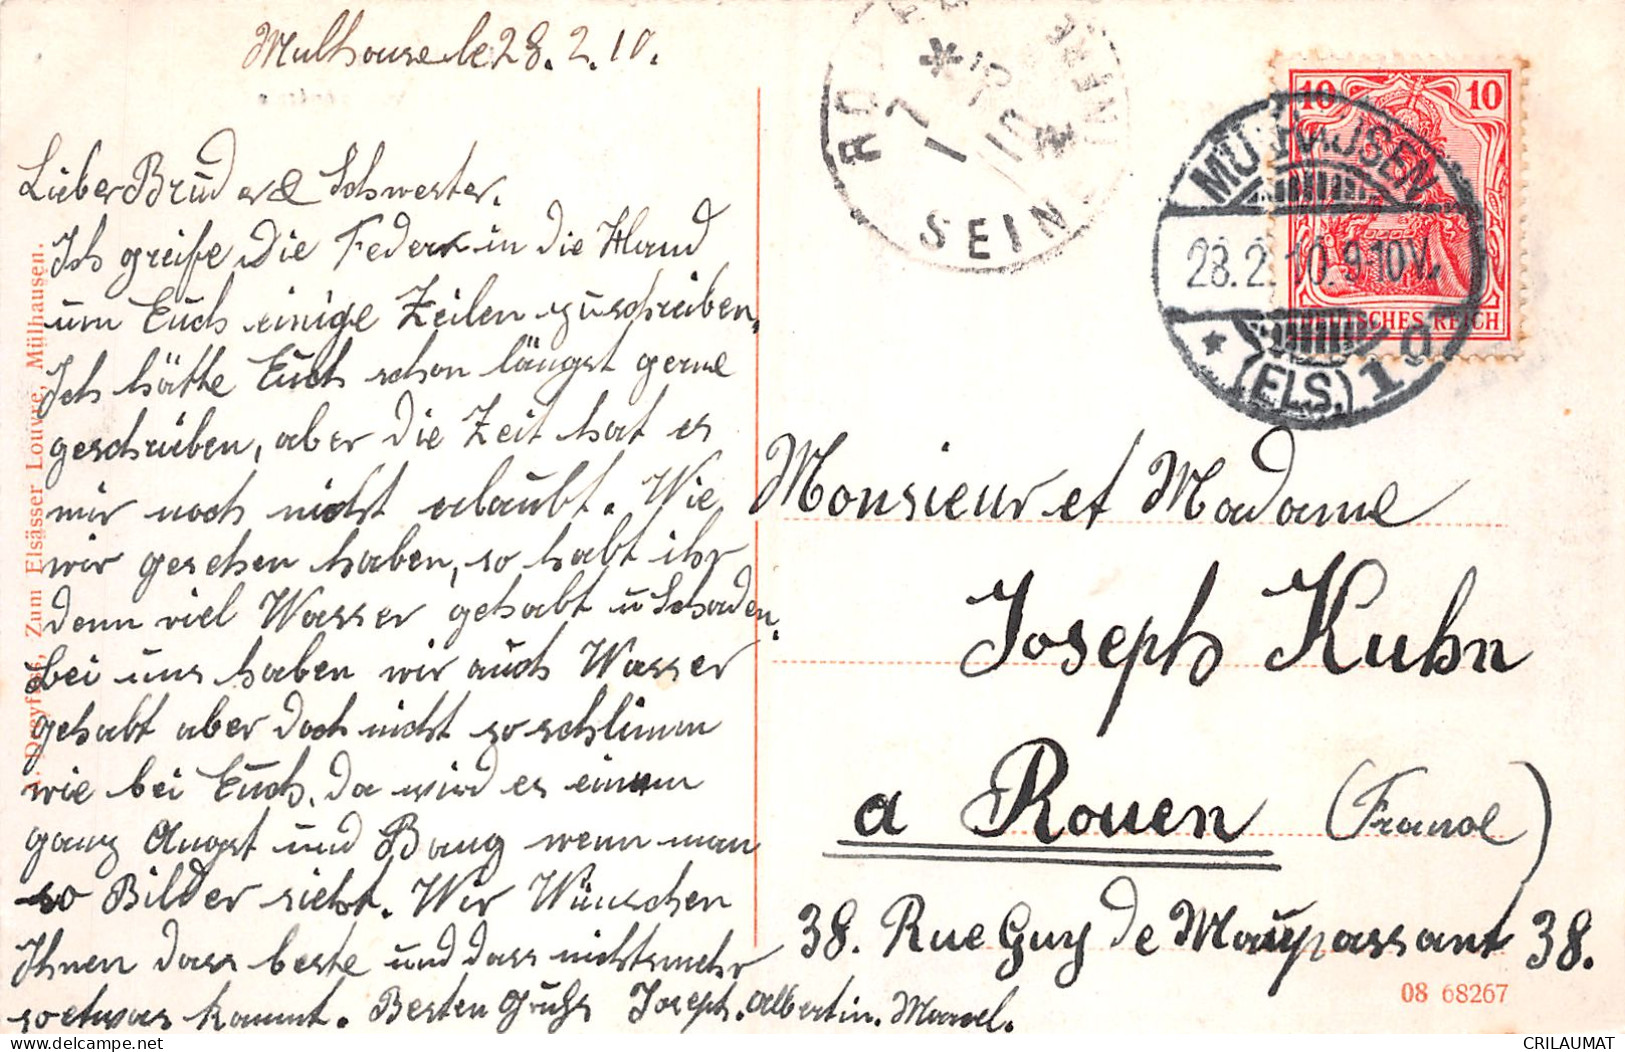 Mulhouse le 28.2.10.
Lieber Bruder & Schwester.
Ich greife die Feder in die Hand
um Euch einige Zeilen zu schreiben,
Ich hätte Euch schon längst gerne
geschrieben, aber die Zeit hat es
mir noch nicht erlaubt. Wie
wir gesehen haben, so habt ihr
denn viel Wasser gehabt u Schaden.
Bei uns haben wir auch Wasser
gehabt aber doch nicht so schlimm
wie bei Euch. Da wird es einem
ganz Angst und Bang wenn man
so Bilder sieht. Wir Wünschen
Ihnen dass beste und dass nichts mehr
so etwas kommt. Besten Grüss Joseph. Albertin. Marcel.
Dreyfuss, Zum Elsässer Louvre, Mülhausen.
SEIN
10 10
DEUTSCHES REICH
MÜLHAUSEN
28.2.10.9-10V.
* (ELS.) 1 g
Monsieur et Madame
Joseph Kuhn
a Rouen (France)
38. Rue Guy de Maupassant 38.
08 68267
CRILAUMAT